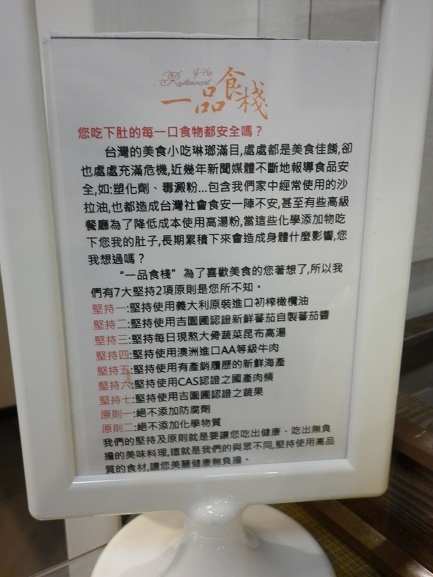 Restaurant
一品食棧
您吃下肚的每一口食物都安全嗎？
台灣的美食小吃琳瑯滿目,處處都是美食佳餚,卻
也處處充滿危機,近幾年新聞媒體不斷地報導食品安
全,如:塑化劑、毒澱粉...包含我們家中經常使用的沙
拉油,也都造成台灣社會食安一陣不安,甚至有些高級
餐廳為了降低成本使用高湯粉,當這些化學添加物吃
下您我的肚子,長期累積下來會造成身體什麼影響,您
我想過嗎？
“一品食棧”為了喜歡美食的您著想了,所以我
們有7大堅持2項原則是您所不知。
堅持一:堅持使用義大利原裝進口初榨橄欖油
堅持二:堅持使用吉園圃認證新鮮蕃茄自製蕃茄醬
堅持三:堅持每日現熬大骨蔬菜昆布高湯
堅持四:堅持使用澳洲進口AA等級牛肉
堅持五:堅持使用有產銷履歷的新鮮海產
堅持六:堅持使用CAS認證之國產肉類
堅持七:堅持使用吉園圃認證之蔬果
原則一:絕不添加防腐劑
原則二:絕不添加化學物質
我們的堅持及原則就是要讓您吃出健康、吃出無負
擔的美味料理,這就是我們的與眾不同,堅持使用高品
質的食材,讓您美麗健康無負擔。